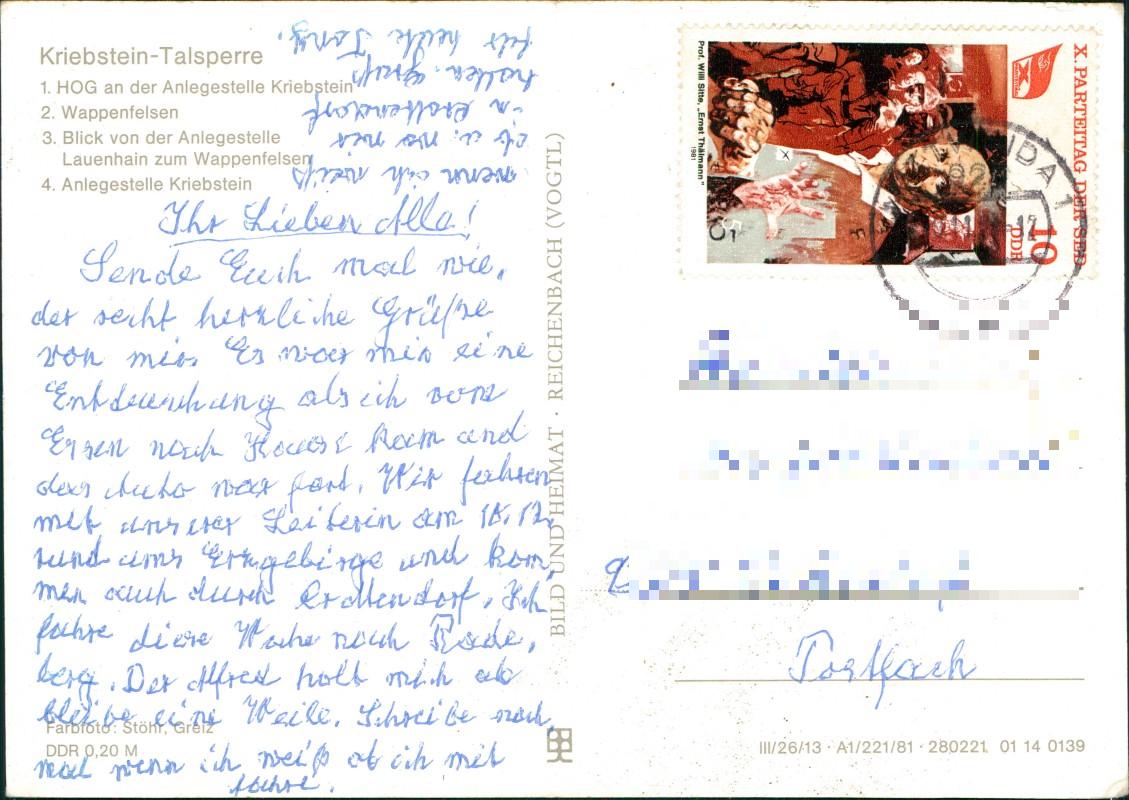 Kriebstein-Talsperre
1. HOG an der Anlegestelle Kriebstein
2. Wappenfelsen
3. Blick von der Anlegestelle
Lauenhain zum Wappenfelsen
4. Anlegestelle Kriebstein
Ihr Lieben Alle!
Sende Euch mal wie,
der recht herzliche Grüße
von mir. Es war mir eine
Entdeuschung als ich vom
Essen nach Hause kam und
das Auto war fort. Wir fahren
mit unserer Leiterin am 18.12.
rund ums Erzgebirge und kom,
men auch durch Crottendorf. Ich
fahre diese Woche nach Rade,
berg. Der Alfred holt mich ab
bleibe eine Weile. Schreibe noch,
mal wenn ich weiß ob ich mit
fahre.
wenn ich weiß
ob u. wo wir
in Crottendorf
halten. Gruß
für heute Tony.
Farbfoto: Stöhr, Greiz
DDR 0,20 M
BILD UND HEIMAT · REICHENBACH (VOGTL)
X. PARTEITAG DER SED
10
DDR
Prof. Willi Sitte, „Ernst Thälmann"
1981
Postfach
III/26/13 · A1/221/81 · 280221 01 14 0139